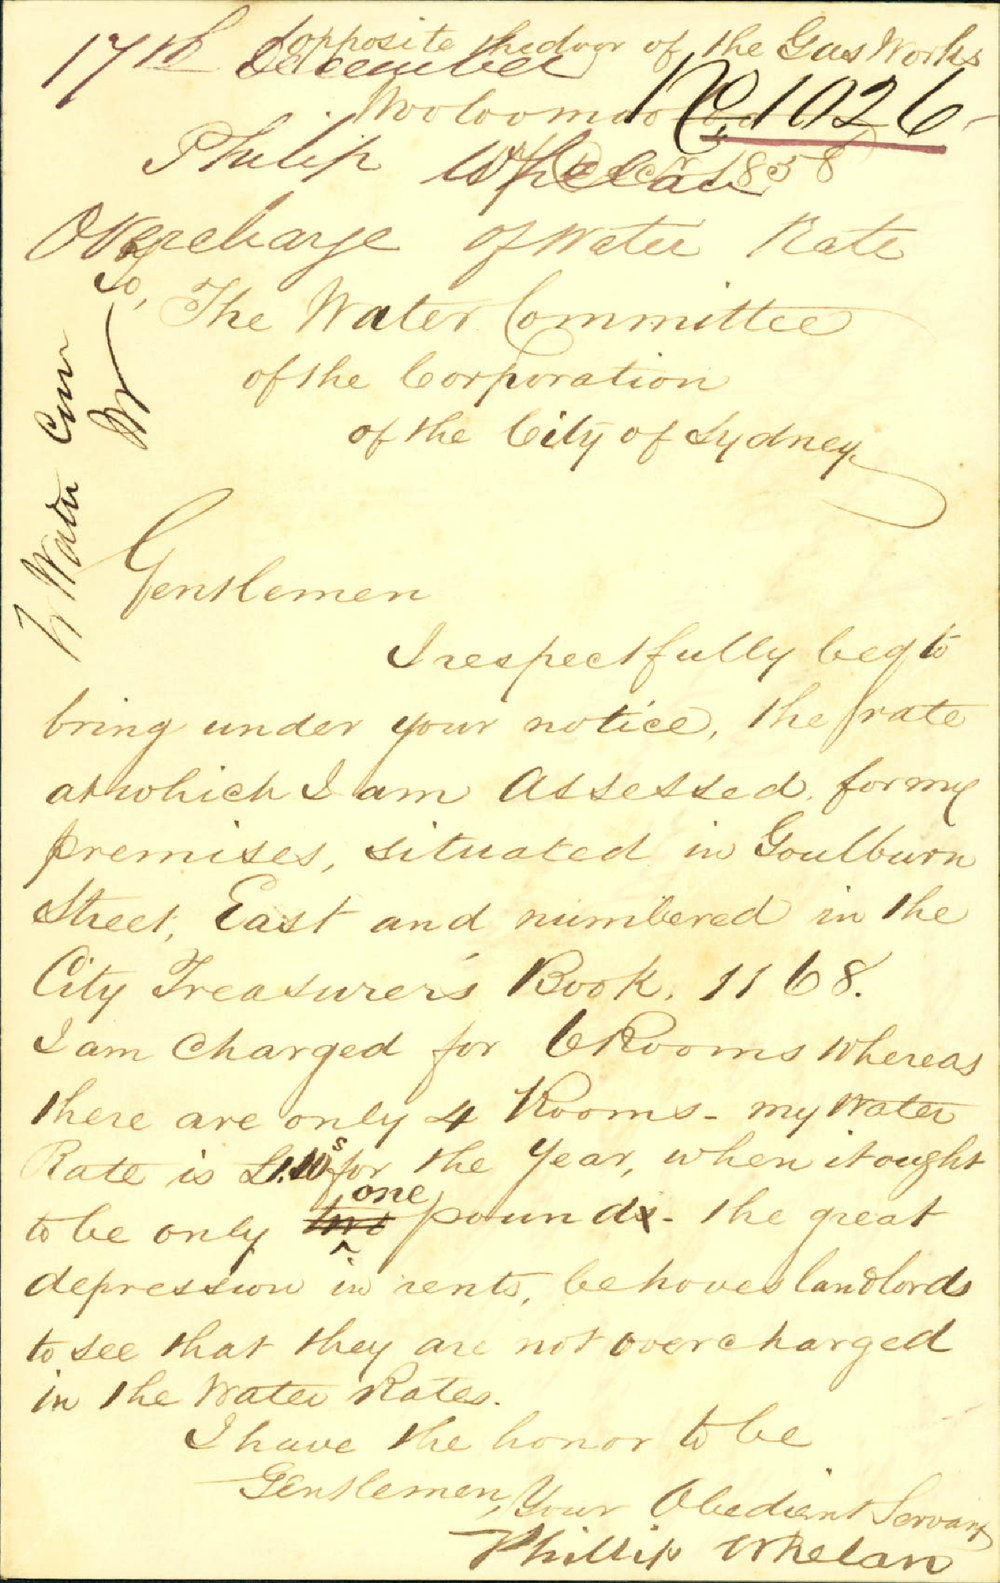 opposite the door of the Gas Works
17th December
Wooloomooloo
No 1026
Philip Whelan
Decr 1858
Overcharge of Water Rate
To,
The Water Committee
of the Corporation
of the City of Sydney.
Water Com
Gentlemen
I respectfully beg to
bring under your notice, the rate
at which I am Assessed, for my
premises, situated in Goulburn
Street, East and numbered in the
City Treasurer's Book. 1168.
I am Charged for 6 Rooms whereas
there are only 4 Rooms - my Water
Rate is £1.10s for the Year, when it ought
to be only one pound - the great
depression in rents, behoves landlords
to see that they are not overcharged
in the Water Rates.
I have the honor to be
Gentlemen, Your Obedient Servant
Phillip Whelan